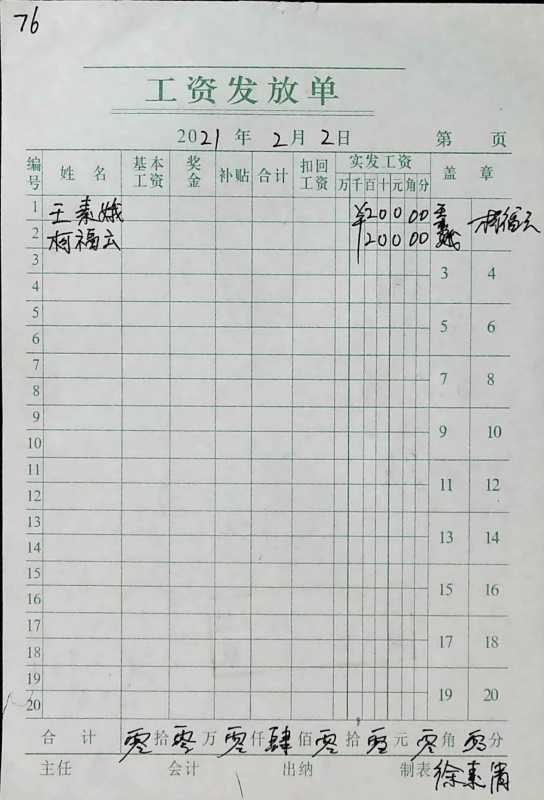 76
工资发放单
2021 年 2 月 2 日 第 页
编号 姓名 基本工资 奖金 补贴 合计 扣回工资 实发工资 盖章
万 千 百 十 元 角 分
1 王素娥 ¥200 00 王素娥 柯福云
2 柯福云 ¥200 00
3 3 4
4
5 5 6
6
7 7 8
8
9 9 10
10
11 11 12
12
13 13 14
14
15 15 16
16
17 17 18
18
19 19 20
20
合计 零拾零万零仟肆佰零拾零元零角零分
主任 会计 出纳 制表 徐素清